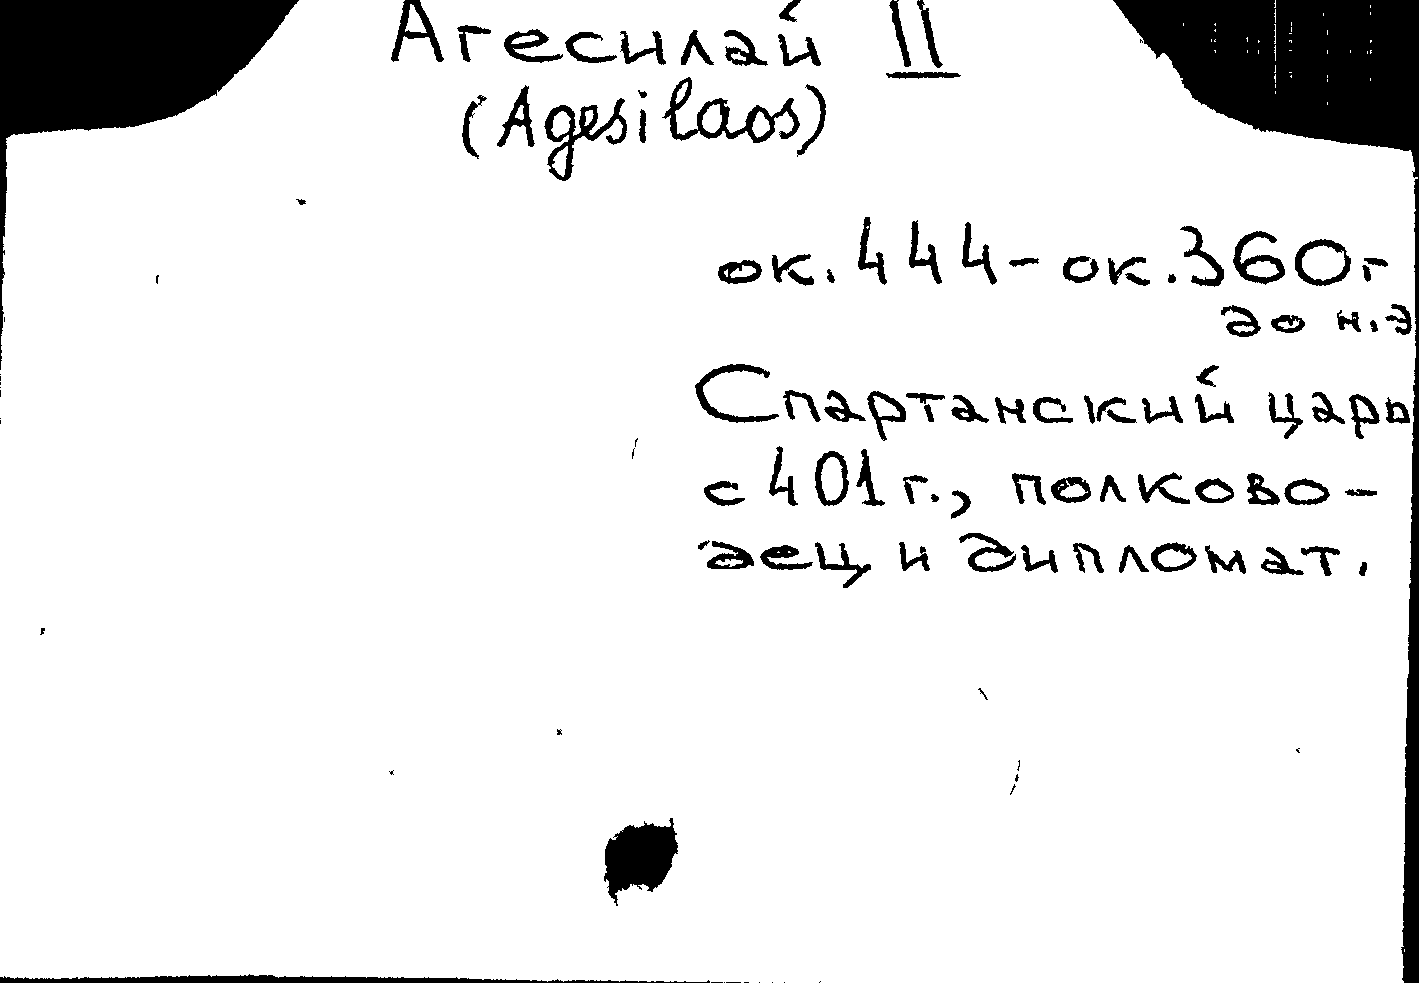 Агесилай II
(Agesilaos)
ок. 444 - ок. 360 г
до н.э
Спартанский царь
с 401 г., полково-
дец и дипломат.